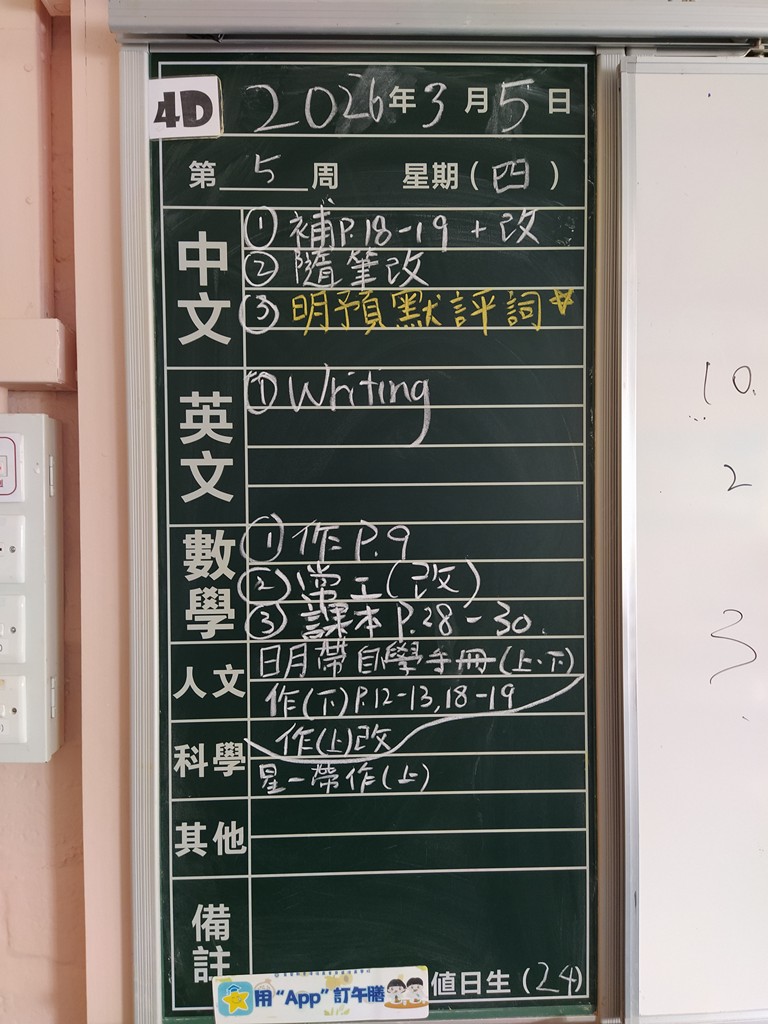 4D 2026年3月5日
第5周 星期(四)
中文
① 補P.18-19 + 改
② 隨筆改
③ 明預默評詞
英文
① Writing
數學
① 作P.9
② 堂工(改)
③ 課本P.28-30
人文
明帶自學手冊(上、下)
作(下)P.12-13,18-19
作(上)改
科學
星一帶作(上)
其他
備註
用“App”訂午膳
值日生(24)
10.
2
3